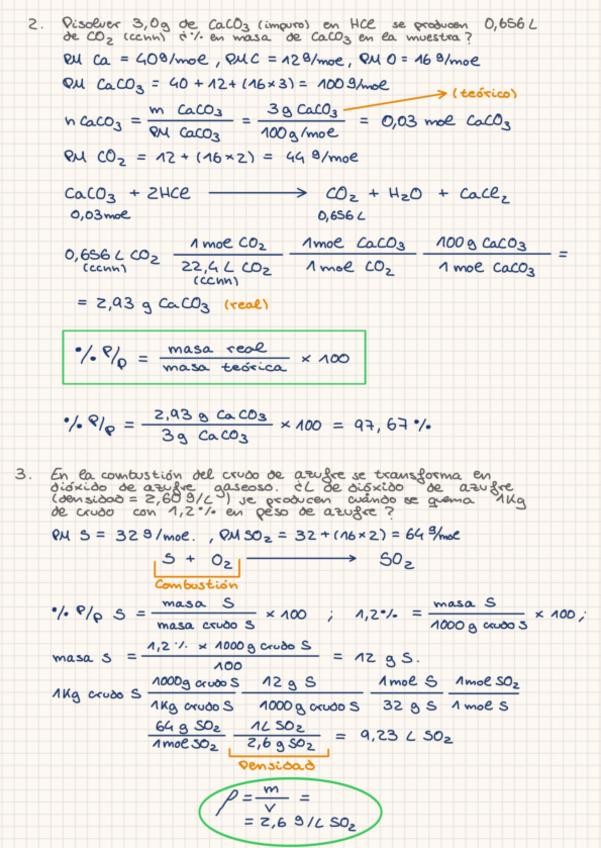 2. Disolver 3,0g de CaCO₃ (impuro) en HCl se producen 0,656 L
de CO₂ (ccnn) ¿% en masa de CaCO₃ en la muestra?
PM Ca = 40g/mol, PM C = 12g/mol, PM O = 16 g/mol
PM CaCO₃ = 40 + 12 + (16×3) = 100g/mol
(teórico)
n CaCO₃ = m CaCO₃ / PM CaCO₃ = 3g CaCO₃ / 100g/mol = 0,03 mol CaCO₃
PM CO₂ = 12 + (16×2) = 44 g/mol
CaCO₃ + 2HCl → CO₂ + H₂O + CaCl₂
0,03mol 0,656 L
0,656 L CO₂ (ccnn) 1 mol CO₂ / 22,4 L CO₂ (ccnn) 1mol CaCO₃ / 1 mol CO₂ 100g CaCO₃ / 1 mol CaCO₃ =
= 2,93 g CaCO₃ (real)
% P/P = masa real / masa teórica × 100
% P/P = 2,93 g CaCO₃ / 3g CaCO₃ × 100 = 97,67 %
3. En la combustión del crudo de azufre se transforma en
dióxido de azufre gaseoso. ¿L de dióxido de azufre
(densidad = 2,60 g/L) se producen cuándo se quema 1Kg
de crudo con 1,2% en peso de azufre?
PM S = 32 g/mol., PM SO₂ = 32 + (16×2) = 64 g/mol
S + O₂ → SO₂
Combustión
% P/P S = masa S / masa crudo S × 100 ; 1,2% = masa S / 1000 g crudo S × 100;
masa S = 1,2 % × 1000 g crudo S / 100 = 12 g S.
1Kg crudo S 1000g crudo S / 1Kg crudo S 12 g S / 1000g crudo S 1mol S / 32 g S 1mol SO₂ / 1 mol S
64 g SO₂ / 1mol SO₂ 1L SO₂ / 2,6 g SO₂ = 9,23 L SO₂
Densidad
ρ = m / v =
= 2,6 g/L SO₂